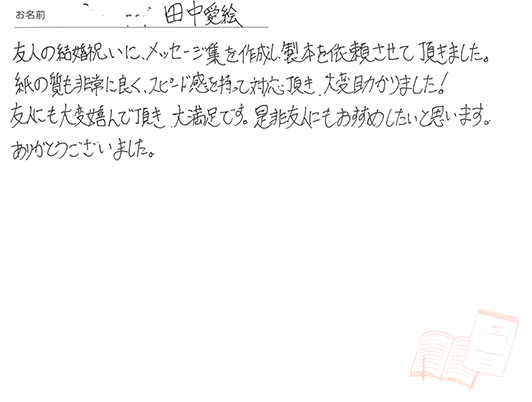 お名前 田中愛絵
友人の結婚祝いに、メッセージ集を作成し製本を依頼させて頂きました。
紙の質も非常に良く、スピード感を持って対応頂き、大変助かりました!
友人にも大変嬉んで頂き、大満足です。是非友人にもおすすめしたいと思います。
ありがとうございました。